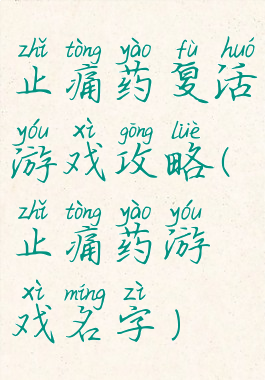 zhǐ tòng yào fù huó
止痛药复活
yóu xì gōng lüè
游戏攻略(
zhǐ tòng yào yóu
止痛药游
xì míng zì
戏名字)